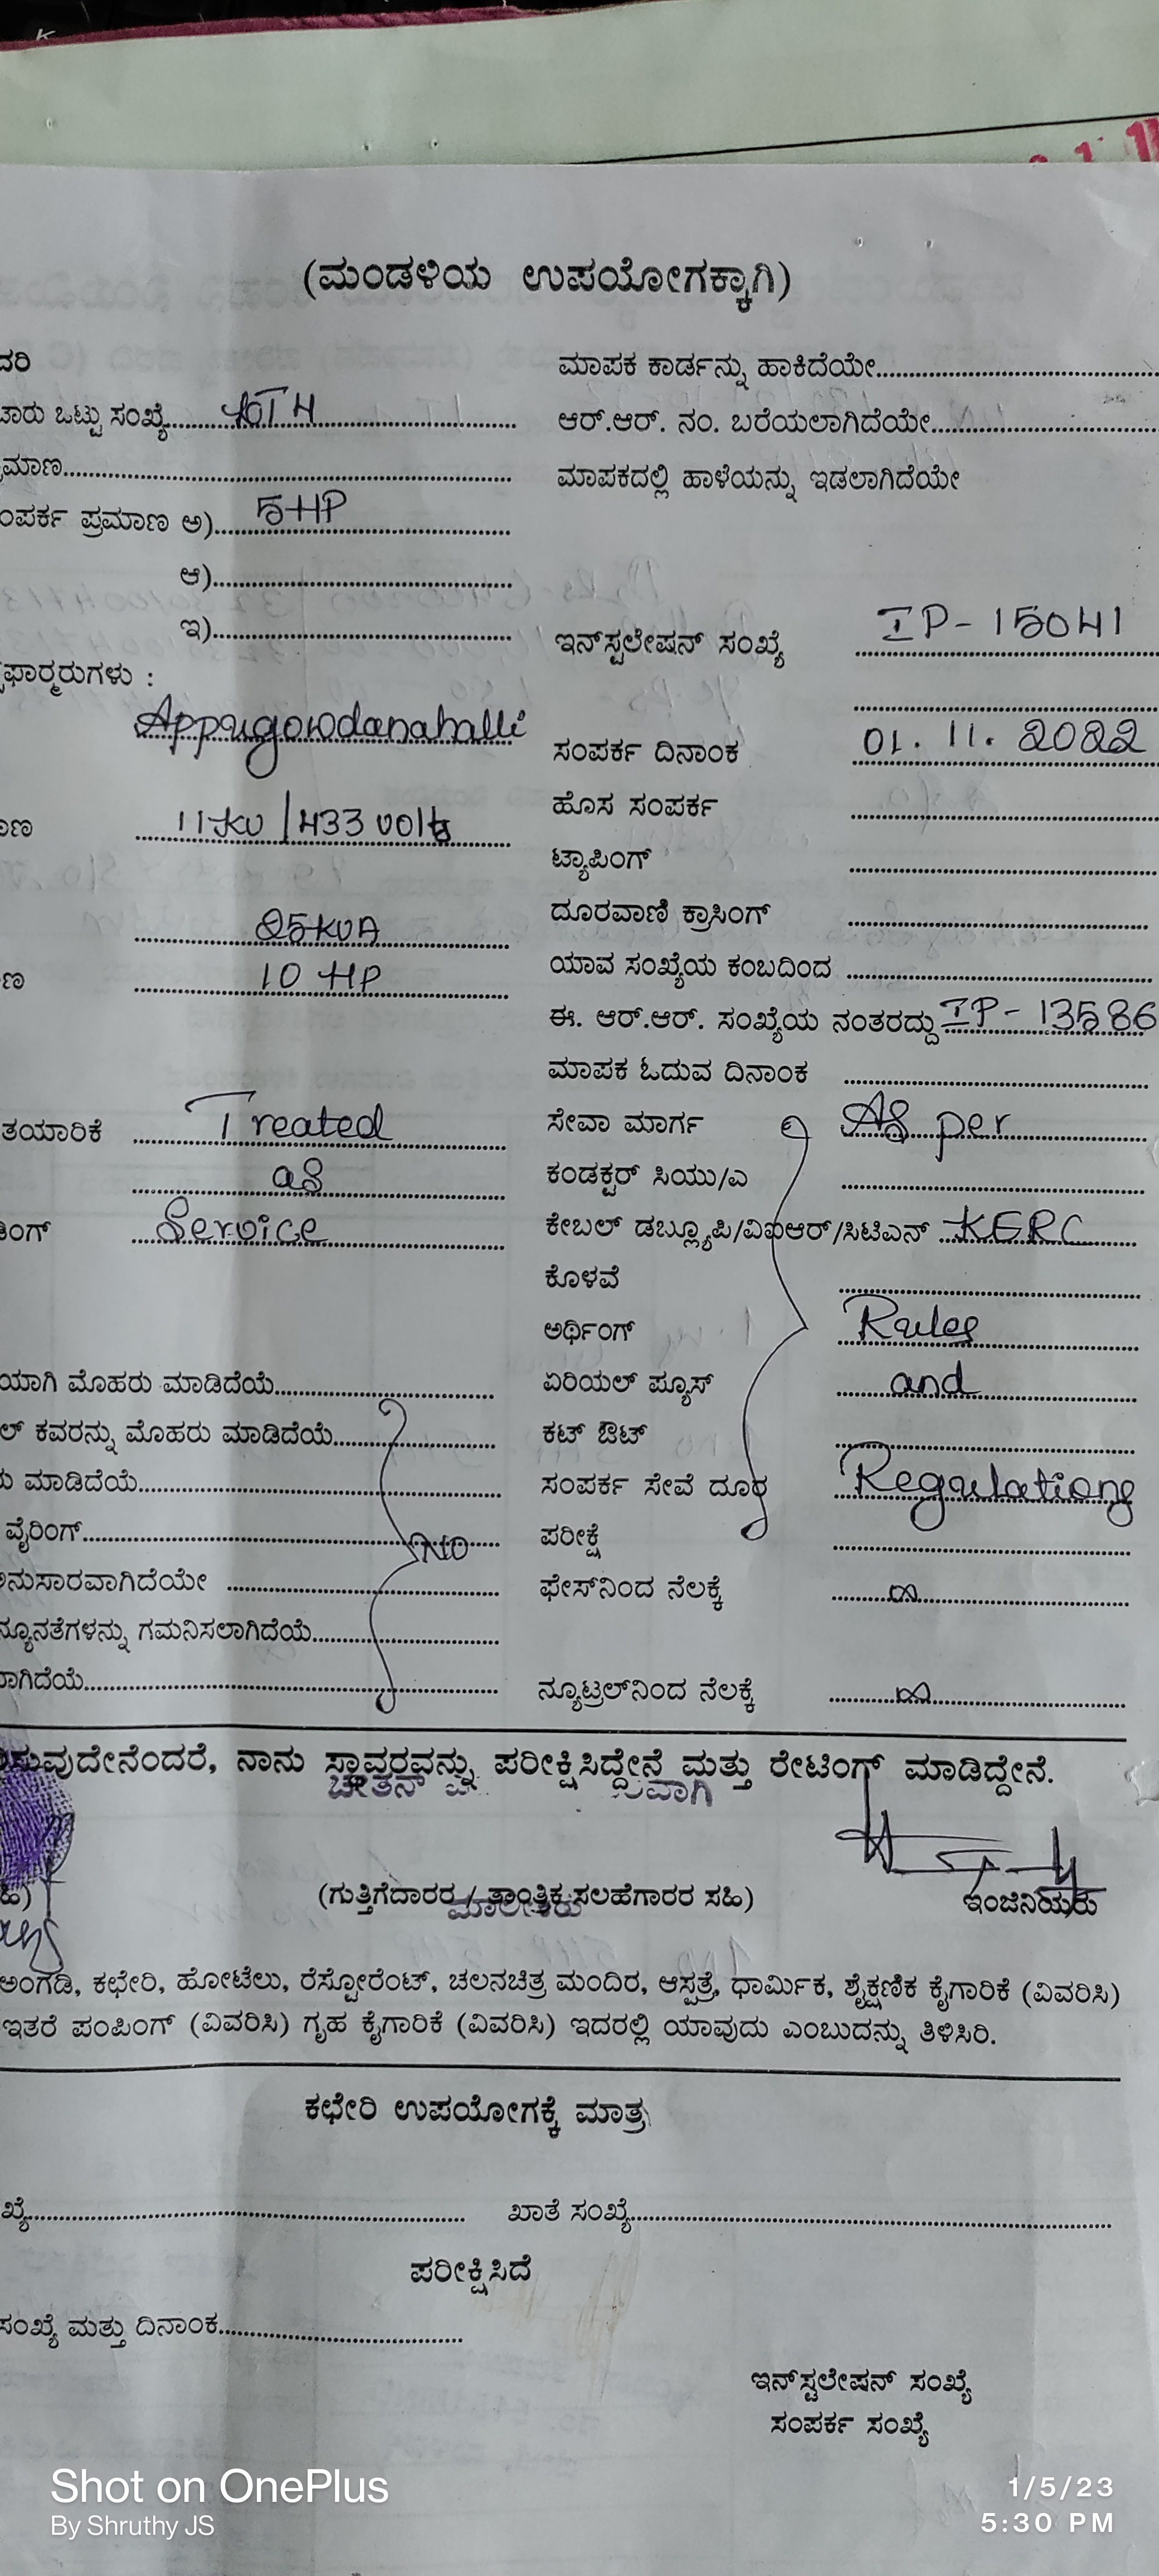 (ಮಂಡಳಿಯ ಉಪಯೋಗಕ್ಕಾಗಿ)
ದರಿ
ಮಾಪಕ ಕಾರ್ಡನ್ನು ಹಾಕಿದೆಯೇ
ಒಟ್ಟು ಸಂಖ್ಯೆ
ಆರ್.ಆರ್. ನಂ. ಬರೆಯಲಾಗಿದೆಯೇ
ಮಾಣ
ಮಾಪಕದಲ್ಲಿ ಹಾಳೆಯನ್ನು ಇಡಲಾಗಿದೆಯೇ
ಂಪರ್ಕ ಪ್ರಮಾಣ ಅ) 5HP
ಆ)
ಇ)
ಇನ್‌ಸ್ಟಲೇಷನ್ ಸಂಖ್ಯೆ IP-15041
ಫಾರ್ಮರುಗಳು :
Appugowdanahalli
ಸಂಪರ್ಕ ದಿನಾಂಕ 01.11.2022
ಹೊಸ ಸಂಪರ್ಕ
ಾಣ 11KV/433 volts
ಟ್ಯಾಪಿಂಗ್
25KVA ದೂರವಾಣಿ ಕ್ರಾಸಿಂಗ್
ಣ 10 HP ಯಾವ ಸಂಖ್ಯೆಯ ಕಂಬದಿಂದ
ಈ. ಆರ್.ಆರ್. ಸಂಖ್ಯೆಯ ನಂತರದ್ದು IP-13586
ಮಾಪಕ ಓದುವ ದಿನಾಂಕ
ತಯಾರಿಕೆ Treated ಸೇವಾ ಮಾರ್ಗ As per
as ಕಂಡಕ್ಟರ್ ಸಿಯು/ಎ
ಂಗ್ Service ಕೇಬಲ್ ಡಬ್ಲ್ಯೂಪಿ/ವಿಐಆರ್/ಸಿಟಿಎನ್ KERC
ಕೊಳವೆ
ಅರ್ಥಿಂಗ್ Rules
ಯಾಗಿ ಮೊಹರು ಮಾಡಿದೆಯೆ ಏರಿಯಲ್ ಪ್ಯೂಸ್ and
ಲ್ ಕವರನ್ನು ಮೊಹರು ಮಾಡಿದೆಯೆ ಕಟ್ ಔಟ್
ಮಾಡಿದೆಯೆ ಸಂಪರ್ಕ ಸೇವೆ ದೂರ Regulations
ವೈರಿಂಗ್ NO ಪರೀಕ್ಷೆ
ನುಸಾರವಾಗಿದೆಯೇ ಫೇಸ್‌ನಿಂದ ನೆಲಕ್ಕೆ ∞
ನ್ಯೂನತೆಗಳನ್ನು ಗಮನಿಸಲಾಗಿದೆಯೆ
ಾಗಿದೆಯೆ ನ್ಯೂಟ್ರಲ್‌ನಿಂದ ನೆಲಕ್ಕೆ ∞
ಸುವುದೇನೆಂದರೆ, ನಾನು ಸ್ಥಾವರವನ್ನು ಪರೀಕ್ಷಿಸಿದ್ದೇನೆ ಮತ್ತು ರೇಟಿಂಗ್ ಮಾಡಿದ್ದೇನೆ.
(ಗುತ್ತಿಗೆದಾರರ / ತಾಂತ್ರಿಕ ಸಲಹೆಗಾರರ ಸಹಿ) ಇಂಜಿನಿಯರು
ಅಂಗಡಿ, ಕಛೇರಿ, ಹೋಟೆಲು, ರೆಸ್ಟೋರೆಂಟ್, ಚಲನಚಿತ್ರ ಮಂದಿರ, ಆಸ್ಪತ್ರೆ, ಧಾರ್ಮಿಕ, ಶೈಕ್ಷಣಿಕ ಕೈಗಾರಿಕೆ (ವಿವರಿಸಿ)
ಇತರೆ ಪಂಪಿಂಗ್ (ವಿವರಿಸಿ) ಗೃಹ ಕೈಗಾರಿಕೆ (ವಿವರಿಸಿ) ಇದರಲ್ಲಿ ಯಾವುದು ಎಂಬುದನ್ನು ತಿಳಿಸಿರಿ.
ಕಛೇರಿ ಉಪಯೋಗಕ್ಕೆ ಮಾತ್ರ
ಖ್ಯೆ ಖಾತೆ ಸಂಖ್ಯೆ
ಪರೀಕ್ಷಿಸಿದೆ
ಸಂಖ್ಯೆ ಮತ್ತು ದಿನಾಂಕ
ಇನ್‌ಸ್ಟಲೇಷನ್ ಸಂಖ್ಯೆ
ಸಂಪರ್ಕ ಸಂಖ್ಯೆ
Shot on OnePlus
By Shruthy JS
1/5/23
5:30 PM